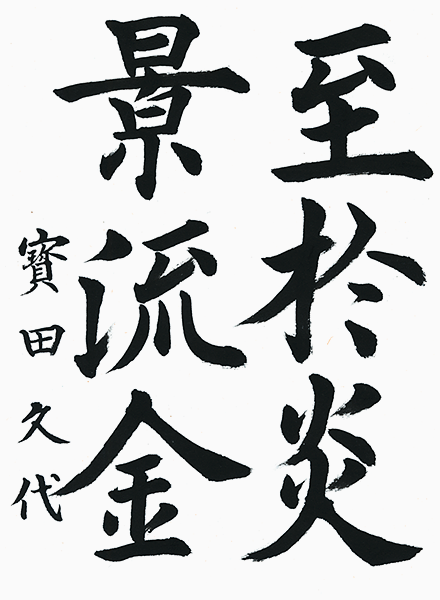 至於炎
景流金
寳田久代